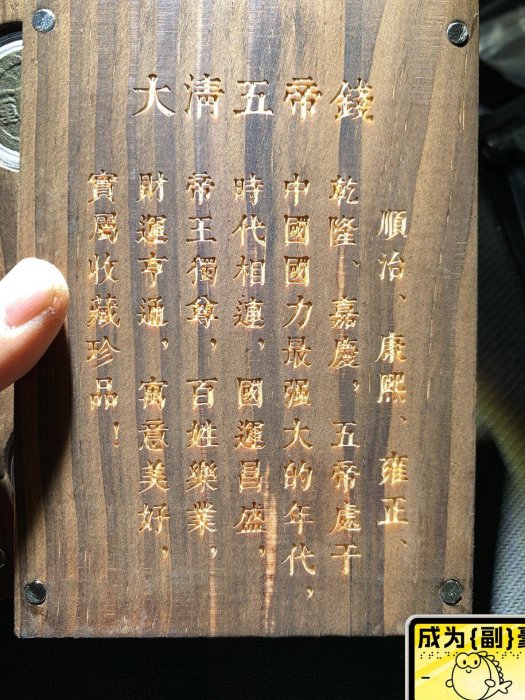 大清五帝錢
順治、康熙、雍正、
乾隆、嘉慶，五帝處于
中國國力最强大的年代，
時代相連，國運昌盛，
帝王獨尊，百姓樂業，
財運亨通，寓意美好，
實屬收藏珍品！
成为{副}